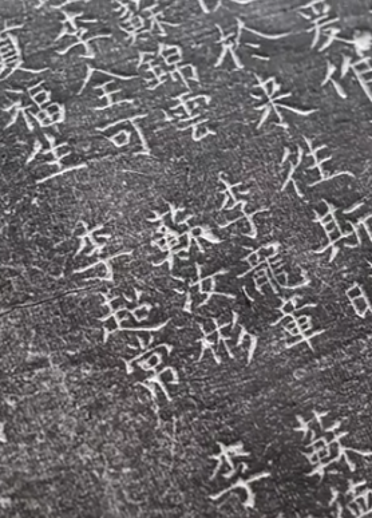 爰
於來往斯日
蘇錦雲 李龍華 蘇
李全可 蘇汝彬 李
福生 李超常